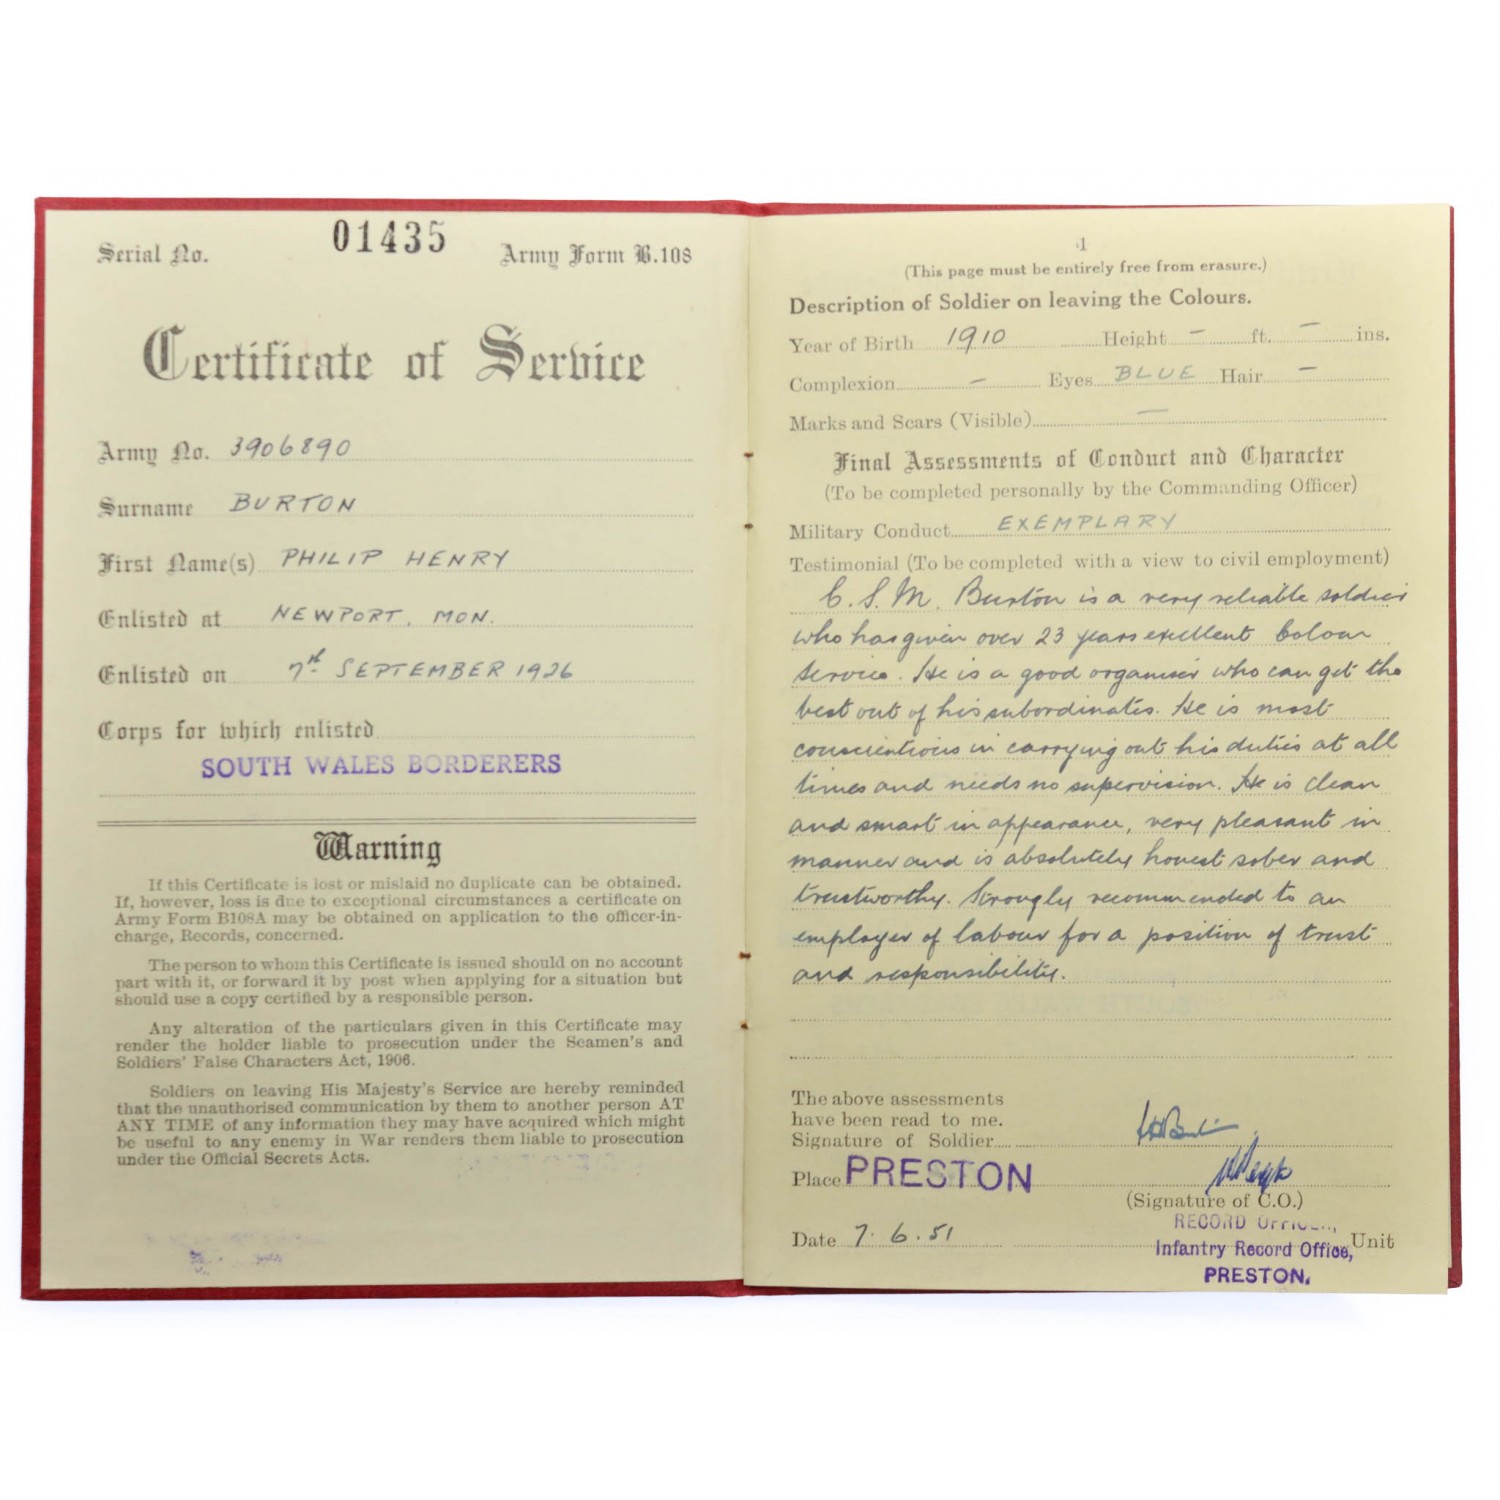 Serial No. 01435 Army Form B.108
Certificate of Service
Army No. 3906890
Surname BURTON
First Name(s) PHILIP HENRY
Enlisted at NEWPORT, MON.
Enlisted on 7th SEPTEMBER 1926
Corps for which enlisted
SOUTH WALES BORDERERS
Warning
If this Certificate is lost or mislaid no duplicate can be obtained.
If, however, loss is due to exceptional circumstances a certificate on
Army Form B108A may be obtained on application to the officer-in-
charge, Records, concerned.
The person to whom this Certificate is issued should on no account
part with it, or forward it by post when applying for a situation but
should use a copy certified by a responsible person.
Any alteration of the particulars given in this Certificate may
render the holder liable to prosecution under the Seamen's and
Soldiers' False Characters Act, 1906.
Soldiers on leaving His Majesty's Service are hereby reminded
that the unauthorised communication by them to another person AT
ANY TIME of any information they may have acquired which might
be useful to any enemy in War renders them liable to prosecution
under the Official Secrets Acts.
1
(This page must be entirely free from erasure.)
Description of Soldier on leaving the Colours.
Year of Birth 1910 Height - ft. - ins.
Complexion - Eyes BLUE Hair -
Marks and Scars (Visible) -
Final Assessments of Conduct and Character
(To be completed personally by the Commanding Officer)
Military Conduct EXEMPLARY
Testimonial (To be completed with a view to civil employment)
C.S.M. Burton is a very reliable soldier
who has given over 23 years excellent Colour
service. He is a good organiser who can get the
best out of his subordinates. He is most
conscientious in carrying out his duties at all
times and needs no supervision. He is clean
and smart in appearance, very pleasant in
manner and is absolutely honest sober and
trustworthy. Strongly recommended to an
employer of labour for a position of trust
and responsibility.
The above assessments
have been read to me.
Signature of Soldier
Place PRESTON
(Signature of C.O.)
RECORD OFFICER,
Date 7.6.51 Unit
Infantry Record Office,
PRESTON.